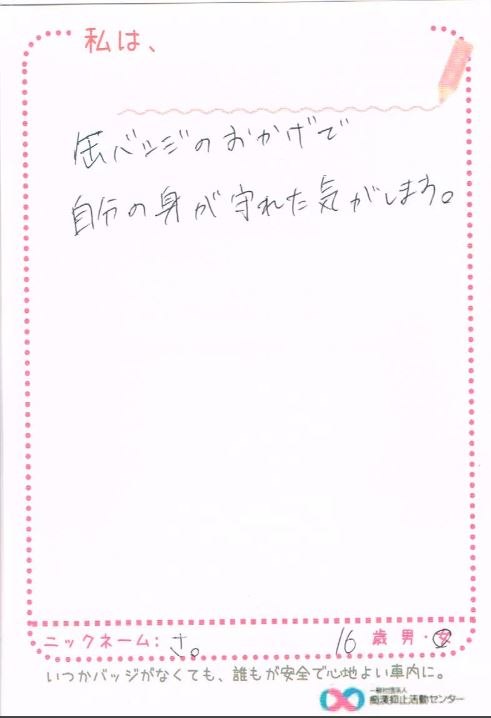 私は、
缶バッジのおかげで
自分の身が守れた気がします。
ニックネーム： さ。 16 歳 男・女
いつかバッジがなくても、誰もが安全で心地よい車内に。
一般社団法人
痴漢抑止活動センター